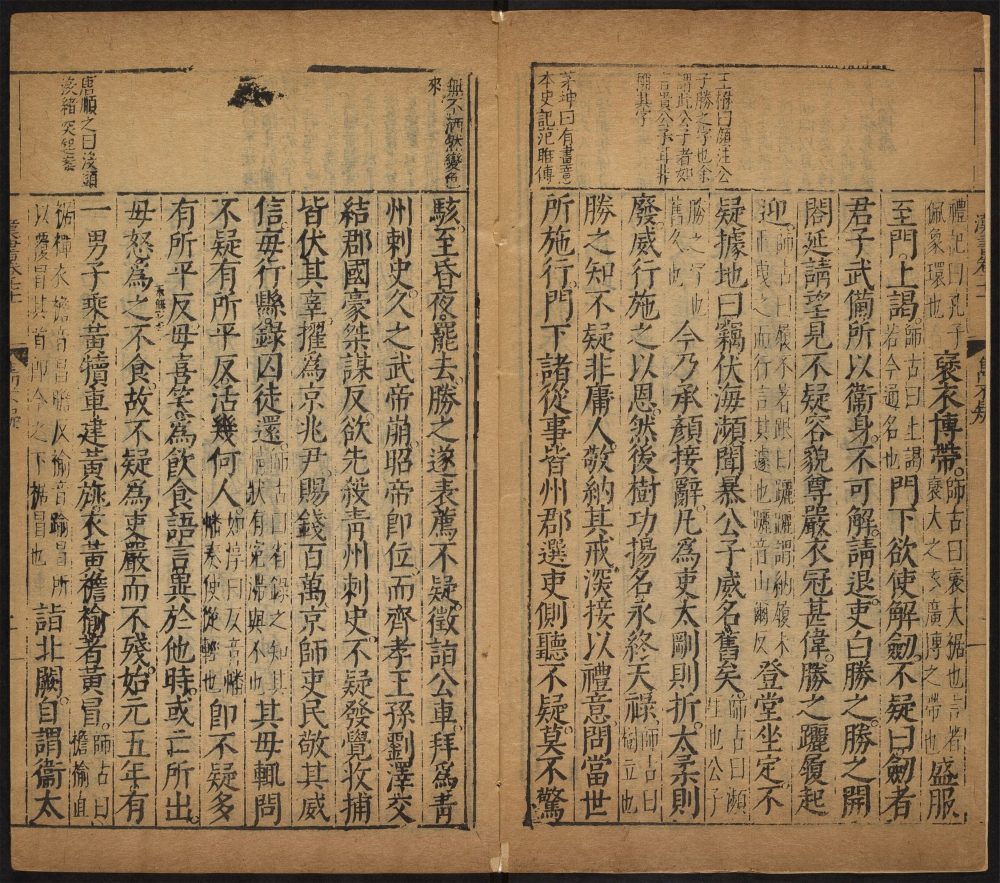 王楙曰顔注公
子勝之字也余
謂此公子者如
言貴公子耳非
稱其字
茅坤曰有畫意
本史記范雎傳
禮記曰孔子佩象環也褒衣博帶。師古曰褒大裾也言著褒大之衣廣博之帶也盛服
至門。上謁師古曰上謁若今通名也門下欲使解劒。不疑曰劒者
君子武備所以衞身。不可解。請退。吏白勝之。勝之開
閤延請望見不疑容貌尊嚴衣冠甚偉。勝之躧履起
迎。師古曰履不著跟曰躧躧謂納履未正而曳之而行言其遽也躧音山爾反登堂坐定。不
疑據地曰竊伏海瀕聞暴公子威名舊矣。師古曰瀕涯也公子勝之字也舊久也
今乃承顏接辭。凡爲吏太剛則折。太柔則
廢。威行施之以恩。然後樹功揚名永終天祿。師古曰樹立也
勝之知不疑非庸人敬納其戒。深接以禮意問當世
所施行。門下諸從事皆州郡選吏側聽不疑。莫不驚
無不洒然變色
來
唐順之曰沒頭
沒緒突起奏
駭。至昏夜罷去。勝之遂表薦不疑。徵詣公車。拜爲青
州刺史。久之武帝崩。昭帝即位而齊孝王孫劉澤交
結郡國豪桀謀反。欲先殺青州刺史。不疑發覺收捕
皆伏其辜。擢爲京兆尹。賜錢百萬。京師吏民敬其威
信毎行縣錄囚徒還師古曰省錄之知其情狀有寃滯與不也其毋輒問
不疑有所平反活幾何人。如淳曰反音幡幡奏使從輕也卽不疑多
有所平反毋喜笑。爲飮食語言異於他時。或亡所出。
毋怒爲之不食。故不疑爲吏嚴而不殘。始元五年有
一男子乘黃犢車建黃旐。衣黃襜褕著黃冒。師古曰襜褕直
裾襌衣襜音昌瞻反褕音踰冒所以覆冒其首卽今之下裙冒也詣北闕。自謂衞太